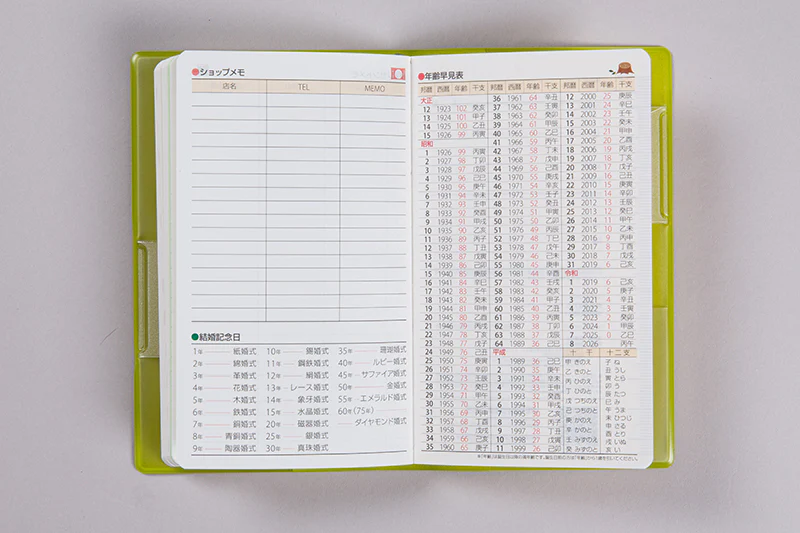 ●ショップメモ
店名 TEL MEMO
●結婚記念日
1年 紙婚式
2年 綿婚式
3年 革婚式
4年 花婚式
5年 木婚式
6年 鉄婚式
7年 銅婚式
8年 青銅婚式
9年 陶器婚式
10年 錫婚式
11年 鋼鉄婚式
12年 絹婚式
13年 レース婚式
14年 象牙婚式
15年 水晶婚式
20年 磁器婚式
25年 銀婚式
30年 真珠婚式
35年 珊瑚婚式
40年 ルビー婚式
45年 サファイア婚式
50年 金婚式
55年 エメラルド婚式
60年(75年)
ダイヤモンド婚式
●年齢早見表
邦暦 西暦 年齢 干支
大正
12 1923 102 癸亥
13 1924 101 甲子
14 1925 100 乙丑
15 1926 99 丙寅
昭和
1 1926 99 丙寅
2 1927 98 丁卯
3 1928 97 戊辰
4 1929 96 己巳
5 1930 95 庚午
6 1931 94 辛未
7 1932 93 壬申
8 1933 92 癸酉
9 1934 91 甲戌
10 1935 90 乙亥
11 1936 89 丙子
12 1937 88 丁丑
13 1938 87 戊寅
14 1939 86 己卯
15 1940 85 庚辰
16 1941 84 辛巳
17 1942 83 壬午
18 1943 82 癸未
19 1944 81 甲申
20 1945 80 乙酉
21 1946 79 丙戌
22 1947 78 丁亥
23 1948 77 戊子
24 1949 76 己丑
25 1950 75 庚寅
26 1951 74 辛卯
27 1952 73 壬辰
28 1953 72 癸巳
29 1954 71 甲午
30 1955 70 乙未
31 1956 69 丙申
32 1957 68 丁酉
33 1958 67 戊戌
34 1959 66 己亥
35 1960 65 庚子
邦暦 西暦 年齢 干支
36 1961 64 辛丑
37 1962 63 壬寅
38 1963 62 癸卯
39 1964 61 甲辰
40 1965 60 乙巳
41 1966 59 丙午
42 1967 58 丁未
43 1968 57 戊申
44 1969 56 己酉
45 1970 55 庚戌
46 1971 54 辛亥
47 1972 53 壬子
48 1973 52 癸丑
49 1974 51 甲寅
50 1975 50 乙卯
51 1976 49 丙辰
52 1977 48 丁巳
53 1978 47 戊午
54 1979 46 己未
55 1980 45 庚申
56 1981 44 辛酉
57 1982 43 壬戌
58 1983 42 癸亥
59 1984 41 甲子
60 1985 40 乙丑
61 1986 39 丙寅
62 1987 38 丁卯
63 1988 37 戊辰
64 1989 36 己巳
平成
1 1989 36 己巳
2 1990 35 庚午
3 1991 34 辛未
4 1992 33 壬申
5 1993 32 癸酉
6 1994 31 甲戌
7 1995 30 乙亥
8 1996 29 丙子
9 1997 28 丁丑
10 1998 27 戊寅
11 1999 26 己卯
邦暦 西暦 年齢 干支
12 2000 25 庚辰
13 2001 24 辛巳
14 2002 23 壬午
15 2003 22 癸未
16 2004 21 甲申
17 2005 20 乙酉
18 2006 19 丙戌
19 2007 18 丁亥
20 2008 17 戊子
21 2009 16 己丑
22 2010 15 庚寅
23 2011 14 辛卯
24 2012 13 壬辰
25 2013 12 癸巳
26 2014 11 甲午
27 2015 10 乙未
28 2016 9 丙申
29 2017 8 丁酉
30 2018 7 戊戌
31 2019 6 己亥
令和
1 2019 6 己亥
2 2020 5 庚子
3 2021 4 辛丑
4 2022 3 壬寅
5 2023 2 癸卯
6 2024 1 甲辰
7 2025 0 乙巳
8 2026 丙午
十干 十二支
甲 きのえ 子 ね
乙 きのと 丑 うし
丙 ひのえ 寅 とら
丁 ひのと 卯 う
戊 つちのえ 辰 たつ
己 つちのと 巳 み
庚 かのえ 午 うま
辛 かのと 未 ひつじ
壬 みずのえ 申 さる
癸 みずのと 酉 とり
戌 いぬ
亥 い
＊「年齢」は誕生日以降の満年齢です。誕生日前の方は「年齢」から1歳を引いてください。